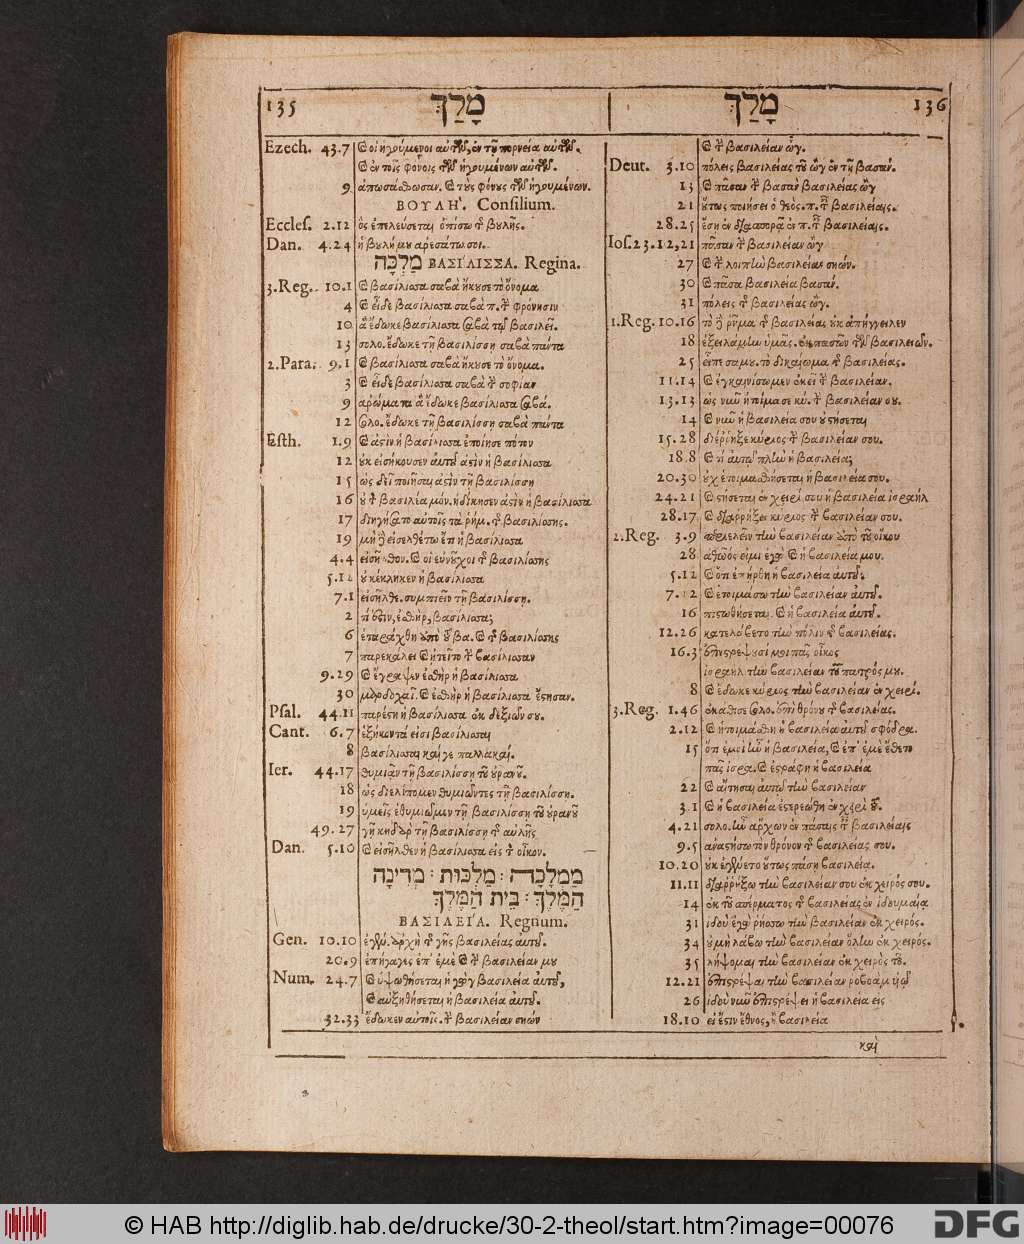 135 מָלַךְ
Ezech. 43.7 ϗ οἱ ἡγούμενοι αὐτῶν, ἐν τῇ πορνεία αὐτῶν.
ϗ ἐν τοῖς φόνοις τῶν ἡγουμένων αὐτῶν.
9 ἀπωσάσθωσαν. ϗ τοὺς φόνους τῶν ἡγουμένων.
ΒΟΥΛΗ'. Consilium.
Eccles. 2.12 ὃς ἐπελεύσεται ὀπίσω τ͂ βουλῆς.
Dan. 4.24 ἡ βουλή μου ἀρεσάτω σοι.
מַלְכָּה ΒΑΣΙ'ΛΙΣΣΑ. Regina.
3.Reg. 10.1 ϗ βασίλισσα σαβὰ ἤκουσε τὸ ὄνομα
4 ϗ εἶδε βασίλισσα σαβὰ π. τ̀ φρόνησιν
10 ἃ ἔδωκε βασίλισσα σαβὰ τῷ βασιλεῖ.
13 σολο. ἔδωκε τῇ βασιλίσσῃ σαβὰ πάντα
2.Para. 9.1 ϗ βασίλισσα σαβὰ ἤκουσε τὸ ὄνομα.
3 ϗ εἶδε βασίλισσα σαβὰ τ̀ σοφίαν
9 ἀρώματα ἃ ἔδωκε βασίλισσα σαβά.
12 σολο. ἔδωκε τῇ βασιλίσσῃ σαβὰ πάντα
Esth. 1.9 ϗ ἀστὶν ἡ βασίλισσα ἐποίησε πότον
12 οὐκ εἰσήκουσεν αὐτοῦ ἀστὶν ἡ βασίλισσα
15 ὡς δεῖ ποιῆσαι ἀστὶν τῇ βασιλίσσῃ
16 οὐ τ̀ βασιλέα μόν. ἠδίκησεν ἀστὶν ἡ βασίλισσα
17 διηγήσατο αὐτοῖς τὰ ῥήμ. τ͂ βασιλίσσης.
19 μὴ δὲ εἰσελθέτω ἔτι ἡ βασίλισσα
4.4 εἰσῆλθον. ϗ οἱ εὐνοῦχοι τ͂ βασιλίσσης
5.12 οὐ κέκληκεν ἡ βασίλισσα
7.1 εἰσῆλθε. συμπιεῖν τῇ βασιλίσσῃ.
2 τί ἐστιν, ἐσθὴρ, βασίλισσα;
6 ἐταράχθη ὑπὸ τοῦ βα. ϗ τ͂ βασιλίσσης
7 παρεκάλει ϗ ᾐτεῖτο τ̀ βασίλισσαν
9.29 ϗ ἔγραψεν ἐσθὴρ ἡ βασίλισσα
30 μαρδοχαῖ. ϗ ἐσθὴρ ἡ βασίλισσα ἔστησαν.
Psal. 44.11 παρέστη ἡ βασίλισσα ἐκ δεξιῶν σου.
Cant. 6.7 ἑξήκοντά εἰσι βασίλισσαι
8 βασίλισσαι καί γε παλλακαί.
Ier. 44.17 θυμιᾷν τῇ βασιλίσσῃ τοῦ οὐρανοῦ.
18 ὡς διελίπομεν θυμιῶντες τῇ βασιλίσσῃ.
19 ὑμεῖς ἐθυμιῶμεν τῇ βασιλίσσῃ τοῦ οὐρανοῦ
49.27 γῆ κηδὰρ τῇ βασιλίσσῃ τ͂ αὐλῆς
Dan. 5.10 ϗ εἰσῆλθεν ἡ βασίλισσα εἰς τ̀ οἶκον.
מַמְלָכָה : מַלְכוּת : מְדִינָה
הַמֶּלֶךְ : בֵּית הַמֶּלֶךְ
ΒΑΣΙΛΕΙ'Α. Regnum.
Gen. 10.10 ἐγένετο ἀρχὴ τ͂ γῆς βασιλείας αὐτοῦ.
20.9 ἐπήγαγες ἐπ' ἐμὲ ϗ τ̀ βασιλείαν μου
Num. 24.7 ϗ ὑψωθήσεται ἡ γὼγ βασιλεία αὐτοῦ,
ϗ αὐξηθήσεται ἡ βασιλεία αὐτοῦ.
32.33 ἔδωκεν αὐτοῖς. τ̀ βασιλείαν σηών
מָלַךְ 136
ϗ τ̀ βασιλείαν ὤγ.
Deut. 3.10 πόλεις βασιλείας τοῦ ὢγ ἐν τῇ βασάν.
13 ϗ πᾶσαν τ̀ βασὰν βασιλείας ὢγ
21 οὕτως ποιήσει ὁ θεὸς. π. τ̀ βασιλείαις.
28.25 ἔσῃ ἐν διασπορᾷ ἐν π. τ̀ βασιλείαις.
Ios. 23.12,21 πᾶσαν τ̀ βασιλείαν ὢγ
27 ϗ τ̀ λοιπὴν βασιλείαν σηών.
30 ϗ πᾶσα βασιλεία βασάν.
31 πόλεις τ͂ βασιλείας ὢγ.
1.Reg. 10.16 τὸ δὲ ῥῆμα τ͂ βασιλείας οὐκ ἀπήγγειλεν
18 ἐξειλάμην ὑμᾶς. ἐκ πασῶν τῶν βασιλειῶν.
25 εἶπε σαμου. τὸ δικαίωμα τ͂ βασιλείας.
11.14 ϗ ἐγκαινίσωμεν ἐκεῖ τ̀ βασιλείαν.
13.13 ὡς νῦν ἡτοίμασε κύ. τ̀ βασιλείαν σου.
14 ϗ νῦν ἡ βασιλεία σου οὐ στήσεται
15.28 διέῤῥηξε κύριος τ̀ βασιλείαν σου.
18.8 ϗ τί αὐτῷ πλὴν ἡ βασιλεία;
20.30 οὐχ ἑτοιμασθήσεται ἡ βασιλεία σου.
24.21 ϗ στήσεται ἐν χειρί σου ἡ βασιλεία ἰσραὴλ
28.17 ϗ διαῤῥήξει κύριος τ̀ βασιλείαν σου.
2.Reg. 3.9 περιελεῖν τὴν βασιλείαν ἀπὸ τοῦ οἴκου
28 ἀθῶός εἰμι ἐγὼ ϗ ἡ βασιλεία μου.
5.12 ϗ ὅτι ἐπήρθη ἡ βασιλεία αὐτοῦ.
7.12 ϗ ἑτοιμάσω τὴν βασιλείαν αὐτοῦ.
16 πιστωθήσεται. ϗ ἡ βασιλεία αὐτοῦ.
12.26 κατελάβετο τὴν πόλιν τ͂ βασιλείας.
16.3 ἐπιστρέψουσί μοι πᾶς οἶκος
ἰσραὴλ τὴν βασιλείαν τοῦ πατρός μου.
8 ϗ ἔδωκε κύριος τὴν βασιλείαν ἐν χειρί.
3.Reg. 1.46 ἐκάθισε σολο. ἐπὶ θρόνου τ͂ βασιλείας.
2.12 ϗ ἡτοιμάσθη ἡ βασιλεία αὐτοῦ σφόδρα.
15 ὅτι ἐμοὶ ἦν ἡ βασιλεία, ϗ ἐπ' ἐμὲ ἔθετο
πᾶς ἰσρα. ϗ ἐστράφη ἡ βασιλεία
22 ϗ αἴτησαι αὐτῷ τὴν βασιλείαν
3.1 ϗ ἡ βασιλεία ἐστερεώθη ἐν χειρὶ σου.
4.21 σολο. ἦν ἄρχων ἐν πάσαις τ̀ βασιλείαις
9.5 ἀναστήσω τὸν θρόνον τ͂ βασιλείας σου.
10.20 οὐκ ἐγένετο οὕτως πάσῃ βασιλεία.
11.11 διαῤῥήξω τὴν βασιλείαν σου ἐκ χειρός σου.
14 ἐκ τοῦ σπέρματος τ͂ βασιλείας ἐν ἰδουμαίᾳ
31 ἰδοὺ ἐγὼ ῥήσσω τὴν βασιλείαν ἐκ χειρός.
34 οὐ μὴ λάβω τὴν βασιλείαν ὅλην ἐκ χειρός.
35 λήψομαι τὴν βασιλείαν ἐκ χειρὸς τοῦ.
12.21 ἐπιστρέψαι τὴν βασιλείαν ροβοὰμ υἱῷ
26 ἰδοὺ νῦν ἐπιστρέψει ἡ βασιλεία εἰς
18.10 εἰ ἔστιν ἔθνος, ἢ βασιλεία
καὶ
© HAB http://diglib.hab.de/drucke/30-2-theol/start.htm?image=00076
DFG